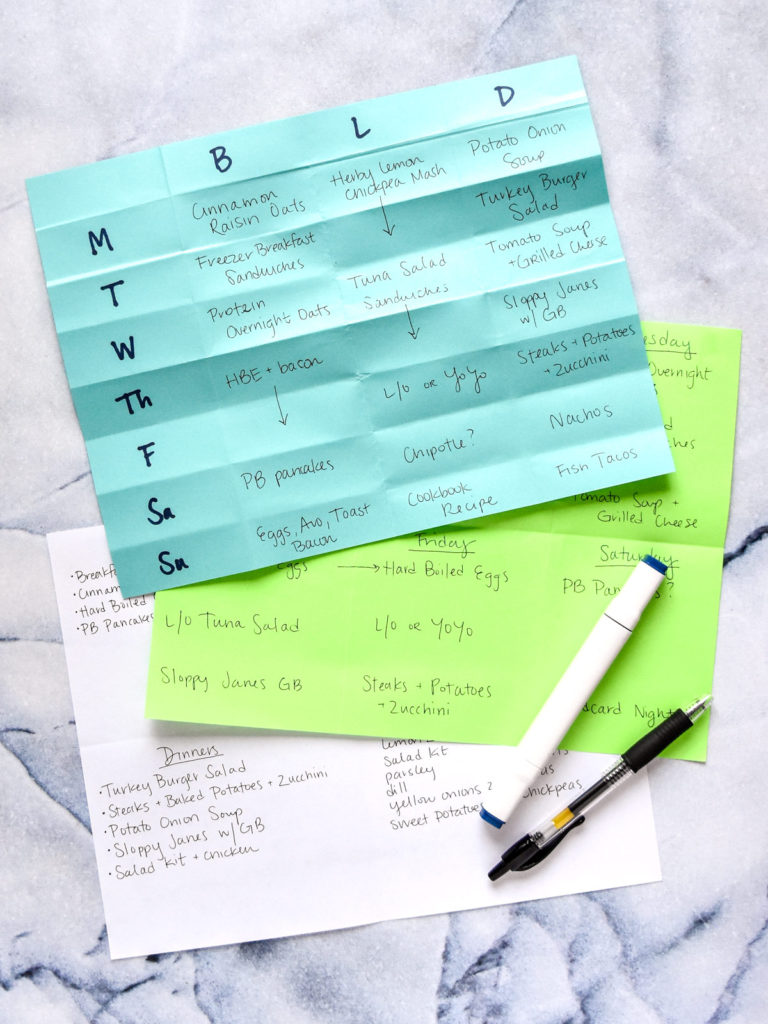 B L D
M
Cinnamon
Raisin Oats
Herby Lemon
Chickpea Mash
Potato Onion
Soup
T
Freezer Breakfast
Sandwiches
Turkey Burger
Salad
W
Protein
Overnight Oats
Tuna Salad
Sandwiches
Tomato Soup
+Grilled Cheese
Th
HBE + bacon
Sloppy Janes
w/ GB
F
L/o or YoYo
Steaks + Potatoes
+ Zucchini
Sa
PB pancakes
Chipotle?
Nachos
Su
Eggs, Avo, Toast
Bacon
Cookbook
Recipe
Fish Tacos
esday
Overnight
Tomato Soup +
Grilled Cheese
Friday
Saturday
Eggs
Hard Boiled Eggs
PB Pan ?
L/o Tuna Salad
L/o or YoYo
Sloppy Janes GB
Steaks + Potatoes
+ Zucchini
dcard Night
• Breakf
• Cinnam
• Hard Boiled
• PB Pancakes
Dinners
• Turkey Burger Salad
• Steaks + Baked Potatoes + Zucchini
• Potato Onion Soup
• Sloppy Janes w/ GB
• Salad Kit + chicken
salad kit
parsley
dill
yellow onions 2
sweet potatoes
chickpeas